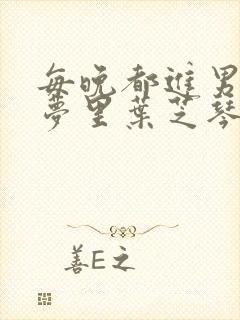 每晚都进男
梦里葉芝琴
善E之